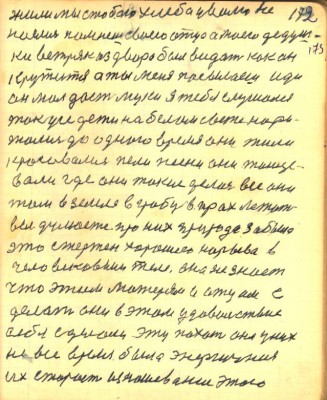 жили мы с тобой хлеба у вволю не 172
мого дедуш-
ки ветряк аз двора был видать как он 173
крутится а ты меня посылаеш иди
он мол даст муки я тебя слушался
так уже дети на белом свете нарж-
жались до одного время они жили
красовались пели песни они танце-
вали где они такие делись все они
там в земле в гробу в прах
про них природа забыла
это стержен хорошего нарыва в
человеческим теле. она не знает
что этим матерям и отцам с
делать они в этом удовольствие
себе сделали эту похоть она у них
не все время была энергичная
их старост изнашевание этого